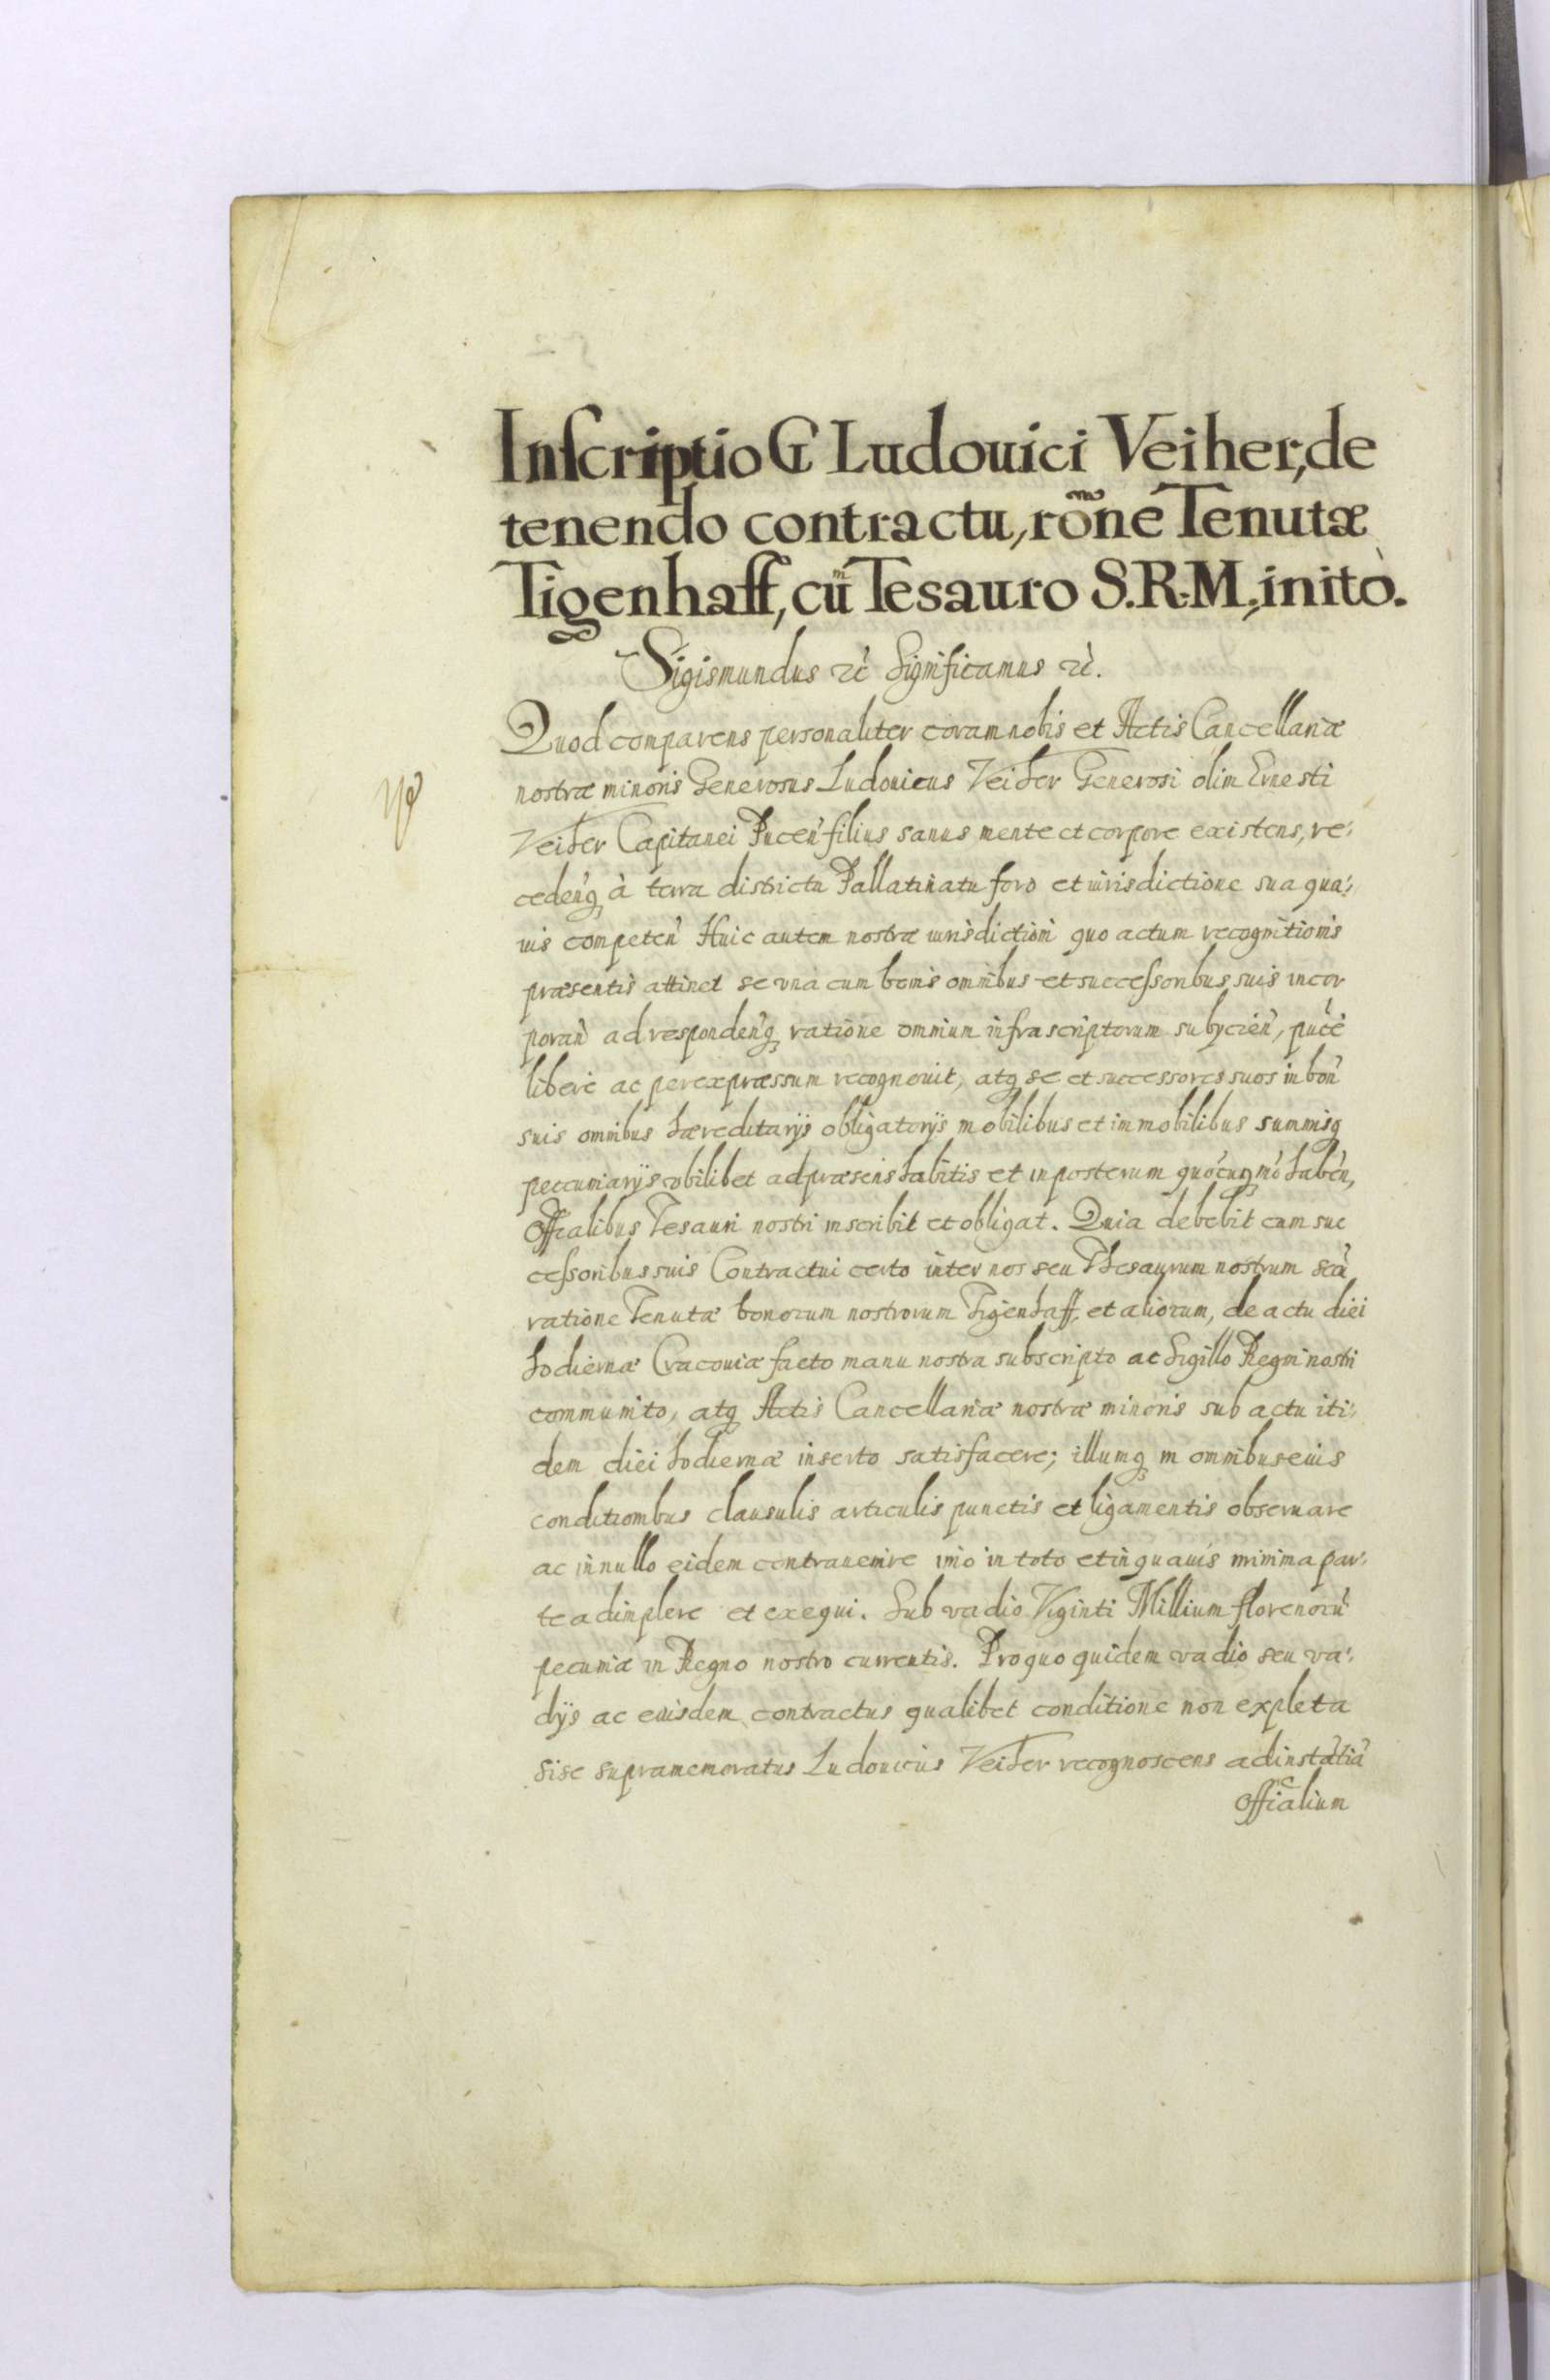 Inscriptio G Ludouici Veiher, de
tenendo contractu, rõne Tenutæ
Tigenhaff, cũm Tesauro S.R.M. inito.
Sigismundus etc̀ Significamus etc̀.
Quod comparens personaliter coram nobis et Actis Cancellariæ
nostræ minoris Generosus Ludouicus Veiher Generosi olim Ernesti
Veiher Capitanei Puceñ filius sanus mente et corpore existens, re:
cedenq̃ à terra districtu Pallatinatu foro et iurisdictione sua qua:
uis competeñ Huic autem nostræ iurisdictioni quo actum recognitionis
præsentis attinet se vna cum bonis omnibus et successoribus suis incor
porañ ad respondenq̃ ratione omnium infrascriptorum subycieñ, puc̃e
libere ac per expræssum recognouit, atq̃ se et successores suos in boñ
suis omnibus hæreditarijs obligatorijs mobilibus et immobilibus summisq̃
peccuniarijs vbilibet ad præsens habitis et inposterum quocunq̃ mõ habeñ,
Offialibus Tesauri nostri inscribit et obligat. Quia debebit cum suc
cessoribus suis Contractui certo inter nos seu Thesaurum nostrum seã
ratione Tenutæ bonorum nostrorum Tigenhaff, et aliorum, de actu diei
hodiernæ Cracouiæ facto manu nostra subscripto ac Sigillo Regni nostri
communito, atq̃ Actis Cancellariæ nostræ minoris sub actu iti:
dem diei hodiernæ inserto satisfacere; illumq̃ in omnibus eiuis
conditionibus clausulis articulis punctis et ligamentis obseruare
ac in nullo eidem contrauenire imo in toto et in quauis minima par:
te adimplere et exequi. Sub vadio Viginti Millium florenorũ
pecuniæ in Regno nostro currentis. Pro quo quidem vadio seu va:
dijs ac eiusdem contractus qualibet conditione non expleta
sise supramemoratus Ludouicus Veiher recognoscens ad instãtiã
Offialium